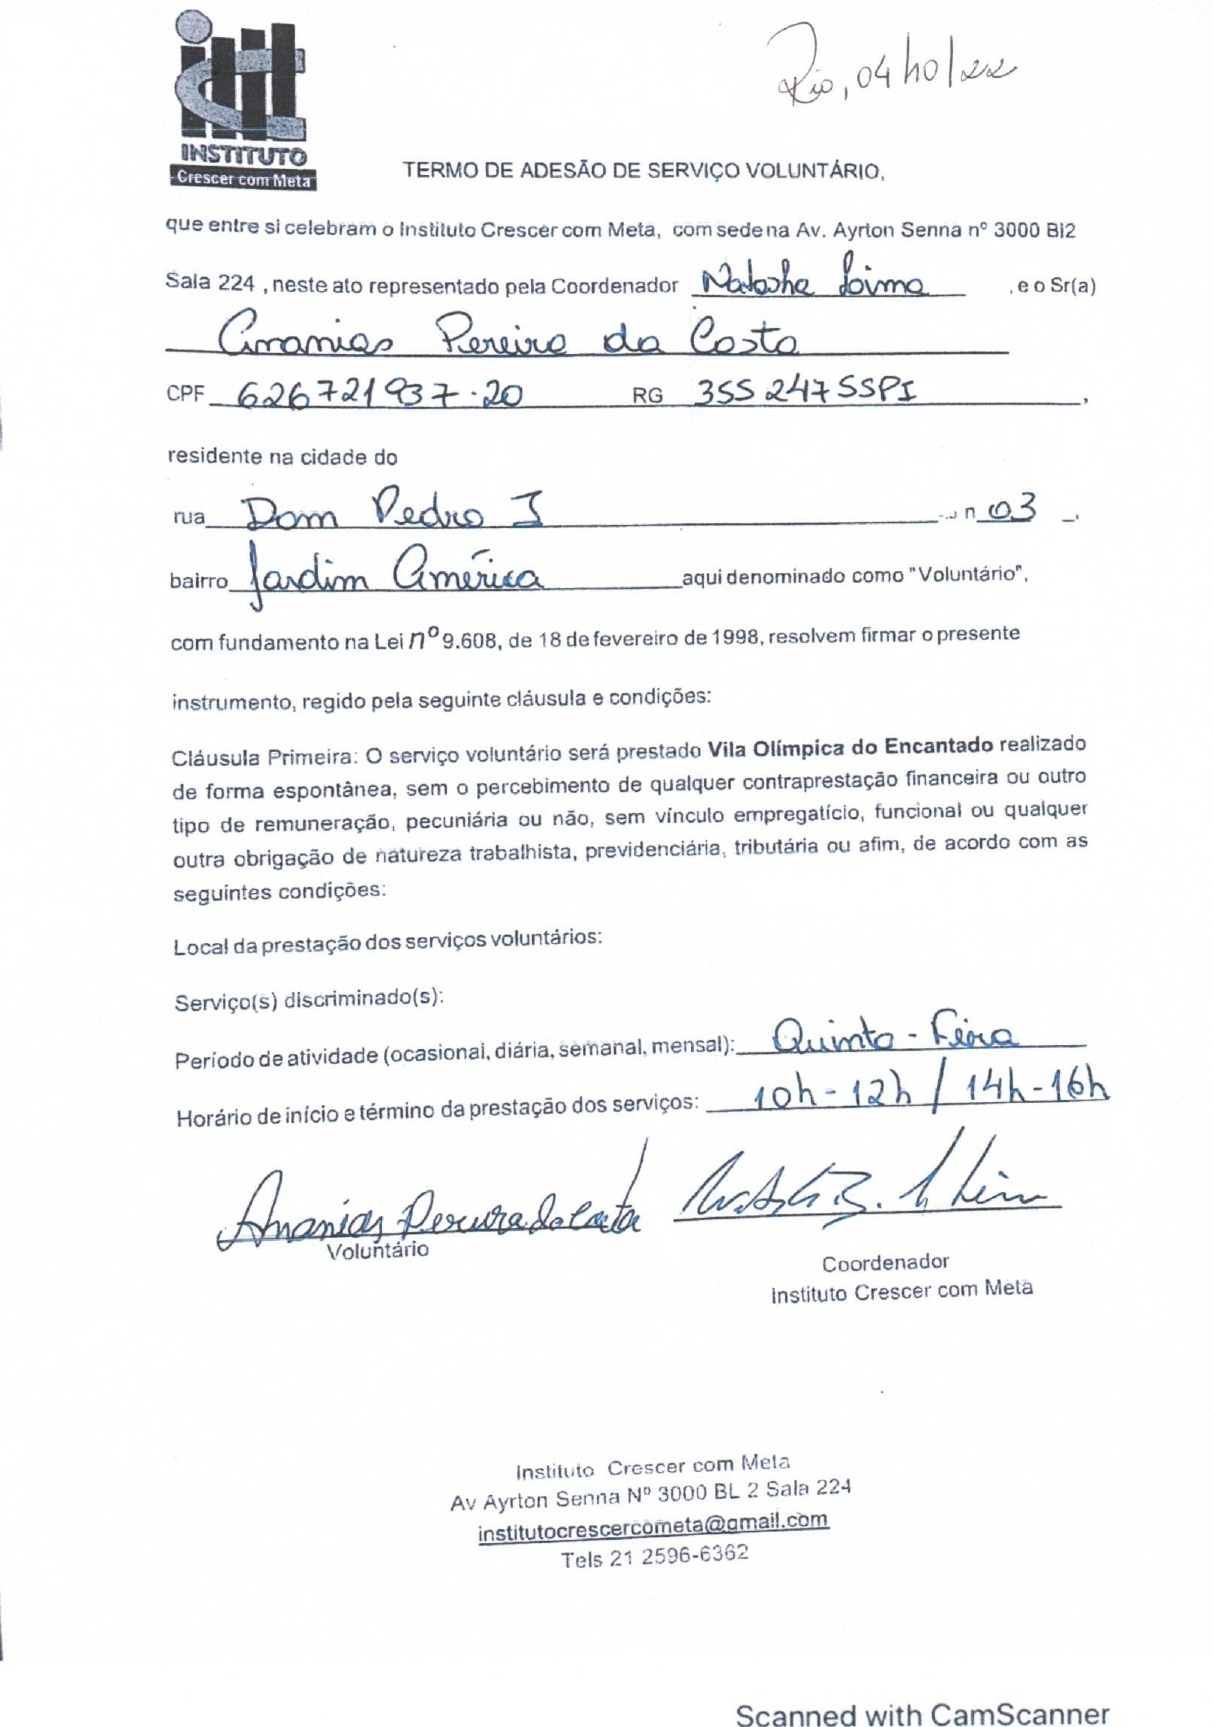 Rio, 04/10/22
INSTITUTO
Crescer com Meta
TERMO DE ADESÃO DE SERVIÇO VOLUNTÁRIO,
que entre si celebram o Instituto Crescer com Meta, com sede na Av. Ayrton Senna nº 3000 Bl2
Sala 224 , neste ato representado pela Coordenador Natasha Lima , e o Sr(a)
Ananias Pereira da Costa
CPF 626721937-20 RG 355247SSPI ,
residente na cidade do
rua Dom Pedro I n 03 ,
bairro Jardim América aqui denominado como "Voluntário",
com fundamento na Lei nº 9.608, de 18 de fevereiro de 1998, resolvem firmar o presente
instrumento, regido pela seguinte cláusula e condições:
Cláusula Primeira: O serviço voluntário será prestado Vila Olímpica do Encantado realizado
de forma espontânea, sem o percebimento de qualquer contraprestação financeira ou outro
tipo de remuneração, pecuniária ou não, sem vínculo empregatício, funcional ou qualquer
outra obrigação de natureza trabalhista, previdenciária, tributária ou afim, de acordo com as
seguintes condições:
Local da prestação dos serviços voluntários:
Serviço(s) discriminado(s):
Período de atividade (ocasional, diária, semanal, mensal): Quinta-Feira
Horário de início e término da prestação dos serviços: 10h-12h / 14h-16h
Ananias Pereira da Costa
Voluntário
Coordenador
Instituto Crescer com Meta
Instituto Crescer com Meta
Av Ayrton Senna Nº 3000 BL 2 Sala 224
institutocrescercometa@gmail.com
Tels 21 2596-6362
Scanned with CamScanner